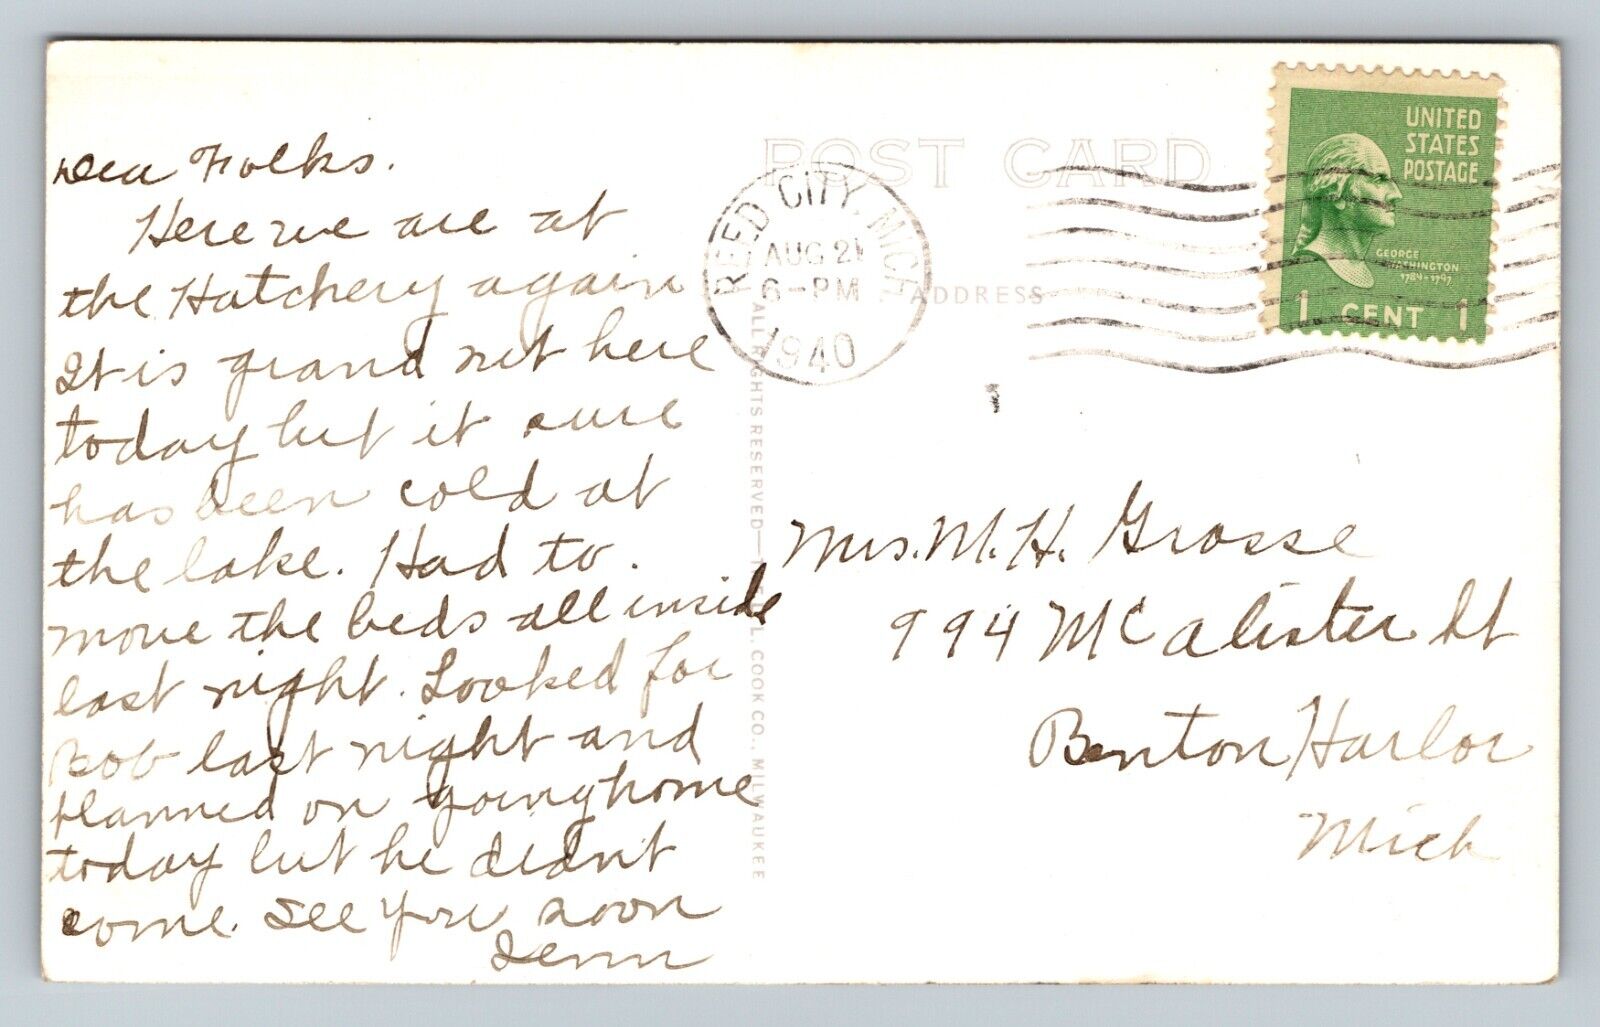 POST CARD
UNITED
STATES
POSTAGE
GEORGE
WASHINGTON
1789-1797
1 CENT 1
REED CITY, MICH
AUG 21
6-PM
1940
ADDRESS
ALL RIGHTS RESERVED— L. COOK CO., MILWAUKEE
Dea Folks.
Here we are at
the Hatchery again
It is grand out here
today but it sure
has been cold at
the lake. Had to.
move the beds all inside
last night. Looked for
Bob last night and
planned on going home
today but he didnt
come. See you soon
Mrs. M. H. Grosse
994 McAlister St
Benton Harbor
Mich